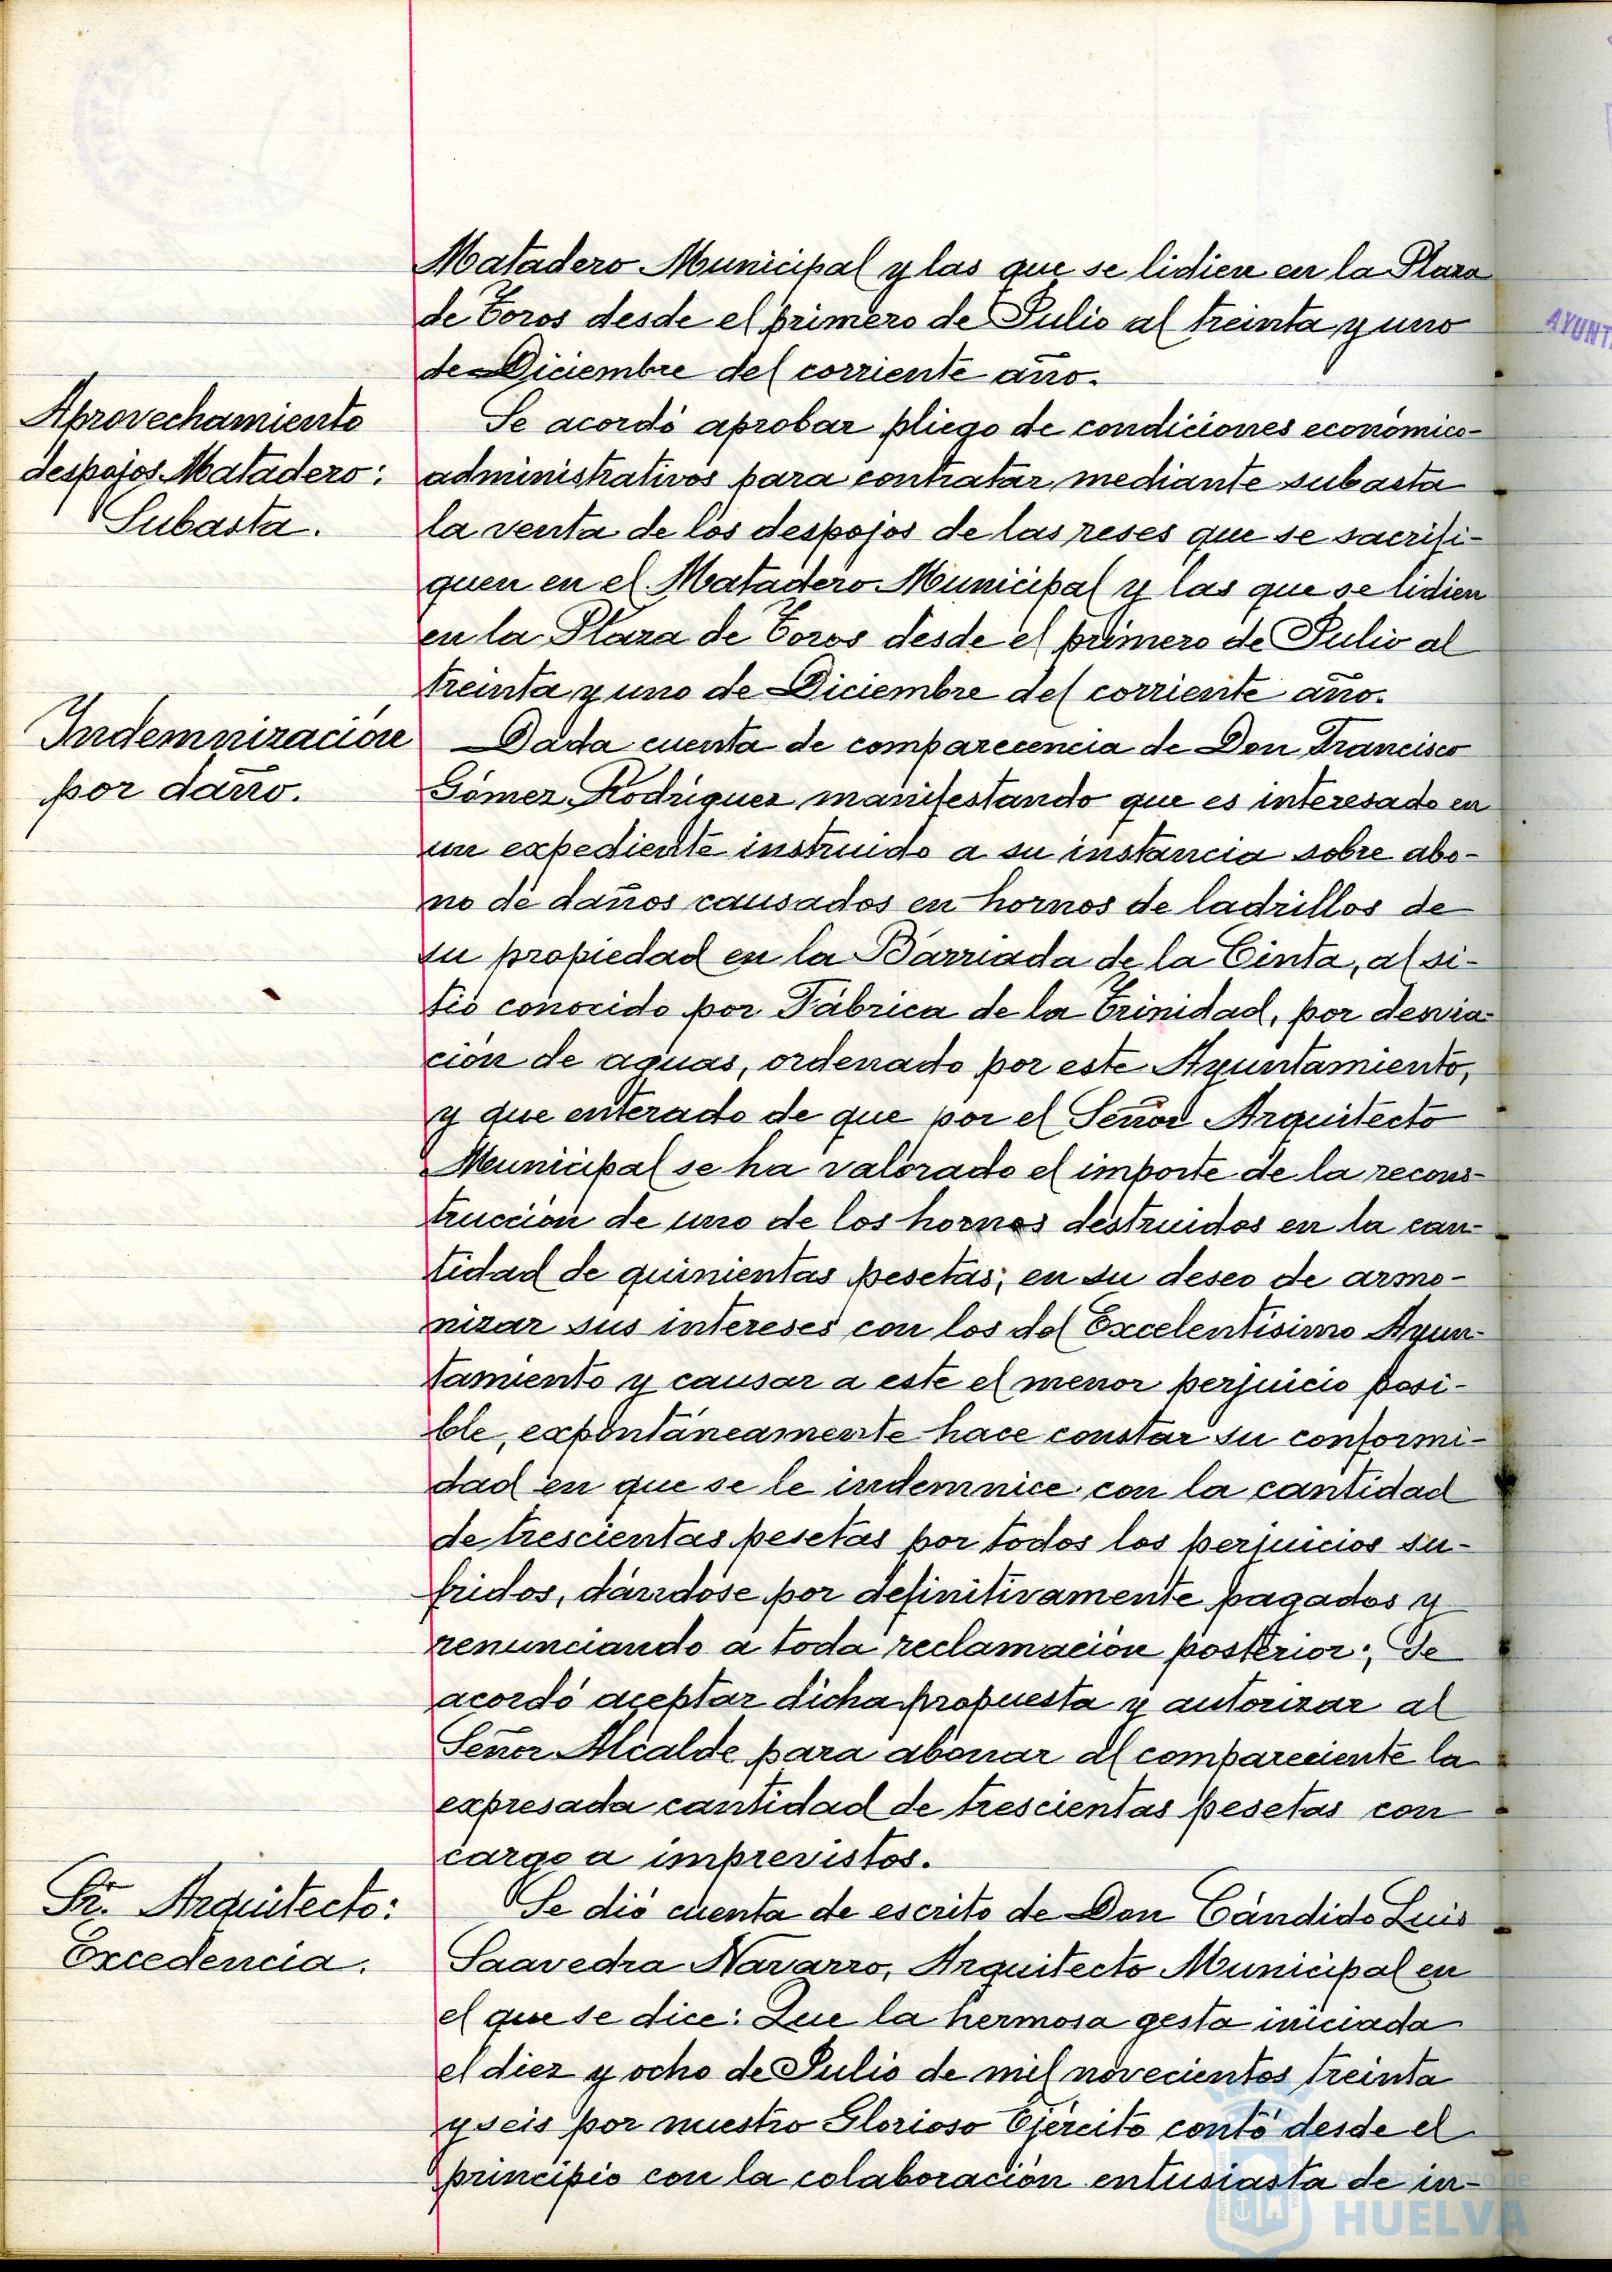 Matadero Municipal y las que se lidien en la Plaza
de Toros desde el primero de Julio al treinta y uno
de Diciembre del corriente año.
Aprovechamiento
despojos Matadero:
Subasta.
Se acordó aprobar pliego de condiciones económico-
administrativos para contratar mediante subasta
la venta de los despojos de las reses que se sacrifi-
quen en el Matadero Municipal y las que se lidien
en la Plaza de Toros desde el primero de Julio al
treinta y uno de Diciembre del corriente año.
Indemnización
por daño.
Dada cuenta de comparecencia de Don Francisco
Gómez Rodríguez manifestando que es interesado en
un expediente instruido a su instancia sobre abo-
no de daños causados en hornos de ladrillos de
su propiedad en la Barriada de la Cinta, al si-
tio conocido por Fábrica de la Trinidad, por desvia-
ción de aguas, ordenado por este Ayuntamiento,
y que enterado de que por el Señor Arquitecto
Municipal se ha valorado el importe de la recons-
trucción de uno de los hornos destruidos en la can-
tidad de quinientas pesetas; en su deseo de armo-
nizar sus intereses con los del Excelentísimo Ayun-
tamiento y causar a este el menor perjuicio posi-
ble, expontáneamente hace constar su conformi-
dad en que se le indemnice con la cantidad
de trescientas pesetas por todos los perjuicios su-
fridos, dándose por definitivamente pagados y
renunciando a toda reclamación posterior; Se
acordó aceptar dicha propuesta y autorizar al
Señor Alcalde para abonar al compareciente la
expresada cantidad de trescientas pesetas con
cargo a imprevistos.
Sr. Arquitecto:
Excedencia.
Se dió cuenta de escrito de Don Cándido Luis
Saavedra Navarro, Arquitecto Municipal en
el que se dice: Que la hermosa gesta iniciada
el diez y ocho de Julio de mil novecientos treinta
y seis por nuestro Glorioso Ejército contó desde el
principio con la colaboración entusiasta de in-
AYUNT
Ayuntamiento de
HUELVA